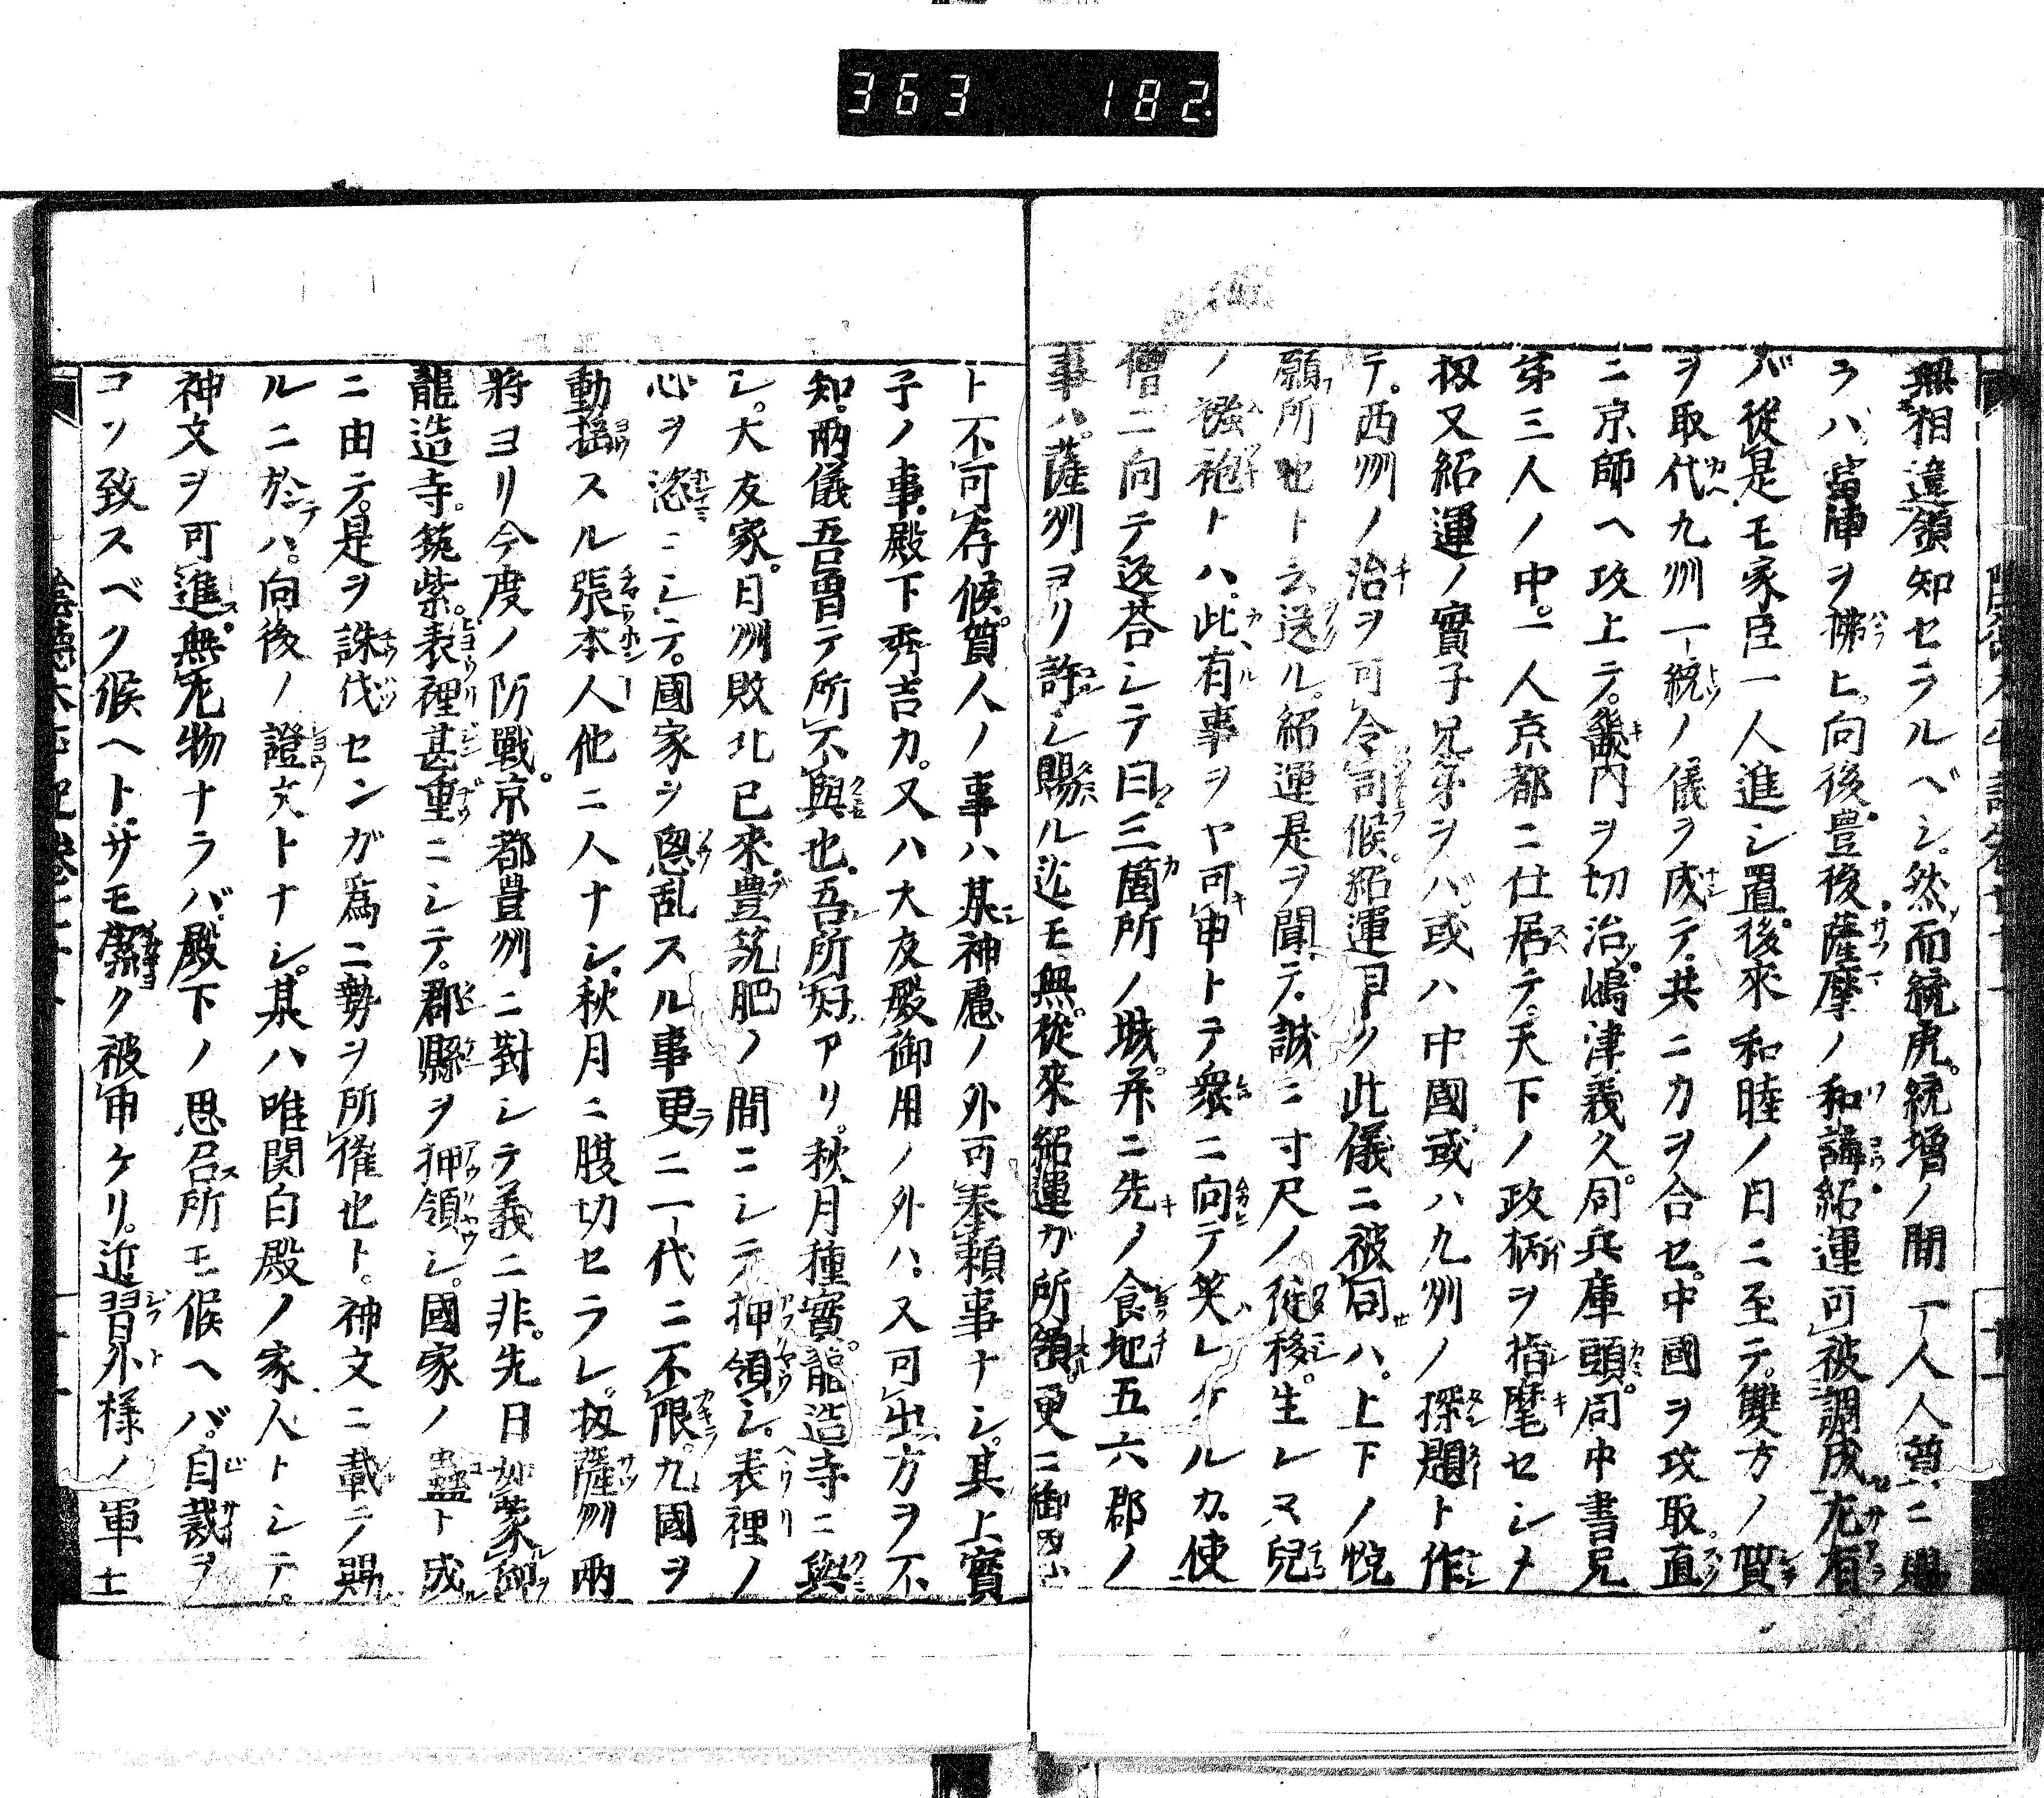 363 182
無相違領知セラルベシ。然而統虎。統増ノ間一人人質ニ賜
ラハ。當陣ヲ拂ヒ。向後豊後薩摩ノ和講紹運可被調成。左有
バ從是モ家臣一人進シ置。後來和睦ノ日ニ至テ。雙方ノ質
ヲ取代九州一統ノ儀ヲ成テ。共ニカヲ合セ。中國ヲ攻取直
ニ京師ヘ攻上テ。畿内ヲ切治。嶋津義久。同兵庫頭。同中書兄
弟三人ノ中。一人京都ニ仕居テ。天下ノ政柄ヲ指麾セシメ
扨又紹運ノ實子兄弟ヲバ。或ハ中國。或ハ九州ノ探題ト作
テ。西州ノ治ヲ可令司候。紹運良ク此儀ニ被同ハ。上下ノ悦
願所也ト云送ル。紹運是ヲ聞テ。誠ニ寸尺ノ從移。生レヌ兒
ノ襁袍トハ。此有事ヲヤ可申トテ衆ニ向テ笑レケルカ。使
僧ニ向テ返荅シテ曰。三箇所ノ城。并ニ先ノ食地五六郡ノ
事ハ。薩州ヨリ許シ賜ル迄モ無。從來紹運ガ所領。更ニ御
ト不可存候。質人ノ事ハ某神慮ノ外可奉頼事ナシ。其上實
子ノ事。殿下秀吉カ。又ハ大友殿御用ノ外ハ。又可出方ヲ不
知。兩儀吾曽テ所不與也。吾所好アリ。秋月種實。龍造寺ニ與
シ。大友家。日州敗北已來。豊筑肥ノ間ニシテ押領シ。表裡ノ
心ヲ恣ニシテ。國家ヲ忩乱スル事更ニ一代ニ不限。九國ヲ
動揺スル張本人他ニ人ナシ。秋月ニ腹切セラレ。扨薩州兩
將ヨリ今度ノ防戰。京都豊州ニ對シテ義ニ非。先日如蒙仰
龍造寺。筑紫。表裡甚重ニシテ。郡縣ヲ押領シ。國家ノ蠱ト成
ニ由テ。是ヲ誅伐センガ爲ニ勢ヲ所催也ト。神文ニ載テ賜
ルニ於テハ。向後ノ證文トナシ。某ハ唯関白殿ノ家人トシテ。
神文ヲ可進。無左物ナラバ。殿下ノ思召所モ候ヘバ。自裁ヲ
コソ致スベク候ヘト。サモ潔ク被申ケリ。近習外様ノ軍士